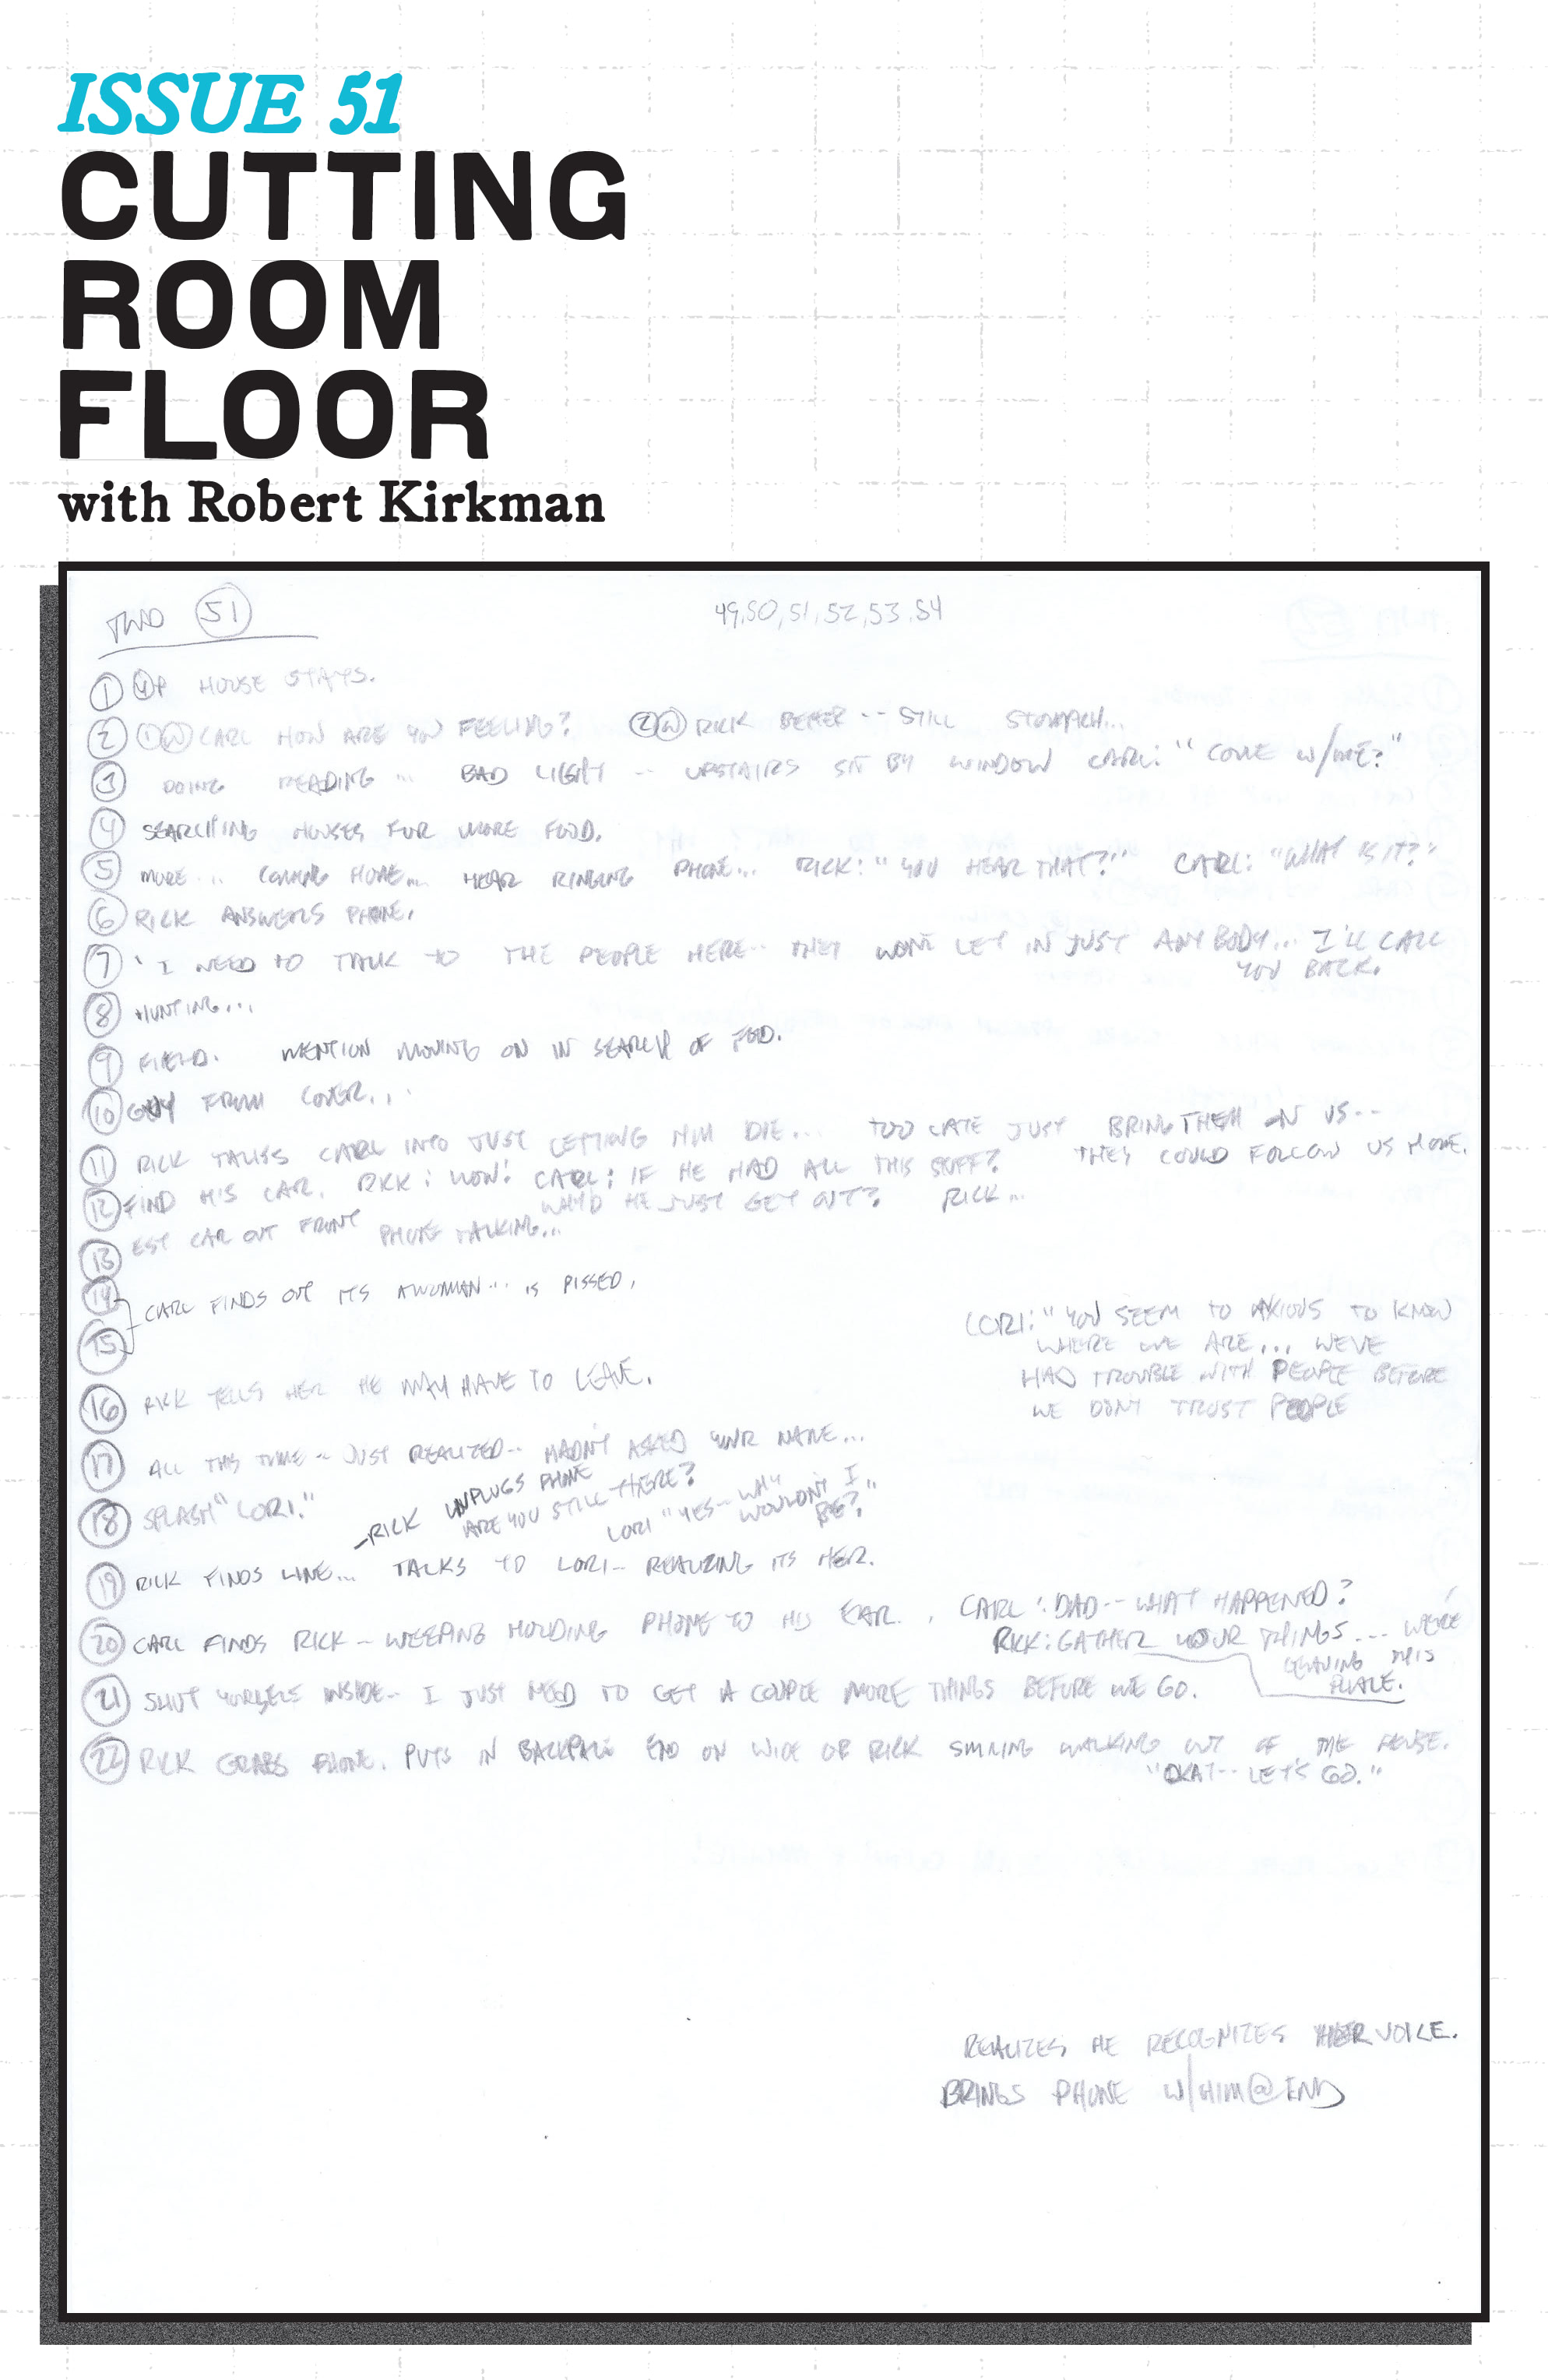 ISSUE 51
CUTTING
ROOM
FLOOR
with Robert Kirkman
TWD 51
49,50,51,52,53,54
1 4P HOUSE STAYS.
2 1W CARL HOW ARE YOU FEELING? 2W RICK BETTER -- STILL STOMACH...
3 DOING READING ... BAD LIGHT -- UPSTAIRS SIT BY WINDOW CARL: "COME W/ME?"
4 SEARCHING HOUSES FOR MORE FOOD.
5 MORE... COMING HOME... HEAR RINGING PHONE... RICK: "YOU HEAR THAT?" CARL: "WHAT IS IT?"
6 RICK ANSWERS PHONE.
7 "I NEED TO TALK TO THE PEOPLE HERE-- THEY WONT LET IN JUST ANYBODY... I'LL CALL
YOU BACK.
8 HUNTING...
9 FIELD. MENTION MOVING ON IN SEARCH OF FOOD.
10 GUY FROM COVER...
11 RICK TALKS CARL INTO JUST LETTING HIM DIE... TOO LATE JUST BRING THEM ON US--
THEY COULD FOLLOW US HOME.
12 FIND HIS CAR. RICK: WOW! CARL: IF HE HAD ALL THIS STUFF?
WHY'D HE JUST GET OUT? RICK...
13 EST CAR OUT FRONT PHONE TALKING...
14
15 CARL FINDS OUT ITS A WOMAN... IS PISSED.
LORI: "YOU SEEM TO AXIOUS TO KNOW
WHERE WE ARE... WE'VE
HAD TROUBLE WITH PEOPLE BEFORE
WE DON'T TRUST PEOPLE
16 RICK TELLS HER HE MAY HAVE TO LEAVE.
17 ALL THIS TIME -- JUST REALIZED-- HADN'T ASKED YOUR NAME...
18 SPLASH "LORI."
-RICK UNPLUGS PHONE
ARE YOU STILL THERE?
LORI "YES-- WHY WOULDN'T I BE?"
19 RICK FINDS LINE... TALKS TO LORI-- REALIZING ITS HER.
20 CARL FINDS RICK -- WEEPING HOLDING PHONE TO HIS EAR.. CARL: DAD-- WHAT HAPPENED?
RICK: GATHER YOUR THINGS... WE'RE
LEAVING THIS
PLACE.
21 SHUT YOURSELF INSIDE-- I JUST NEED TO GET A COUPLE MORE THINGS BEFORE WE GO.
22 RICK GRABS PHONE. PUTS IN BACKPACK END ON WIDE OF RICK SMILING WALKING OUT OF THE HOUSE.
"OKAY-- LET'S GO."
REALIZES HE RECOGNIZES HER VOICE.
BRINGS PHONE W/HIM @ END